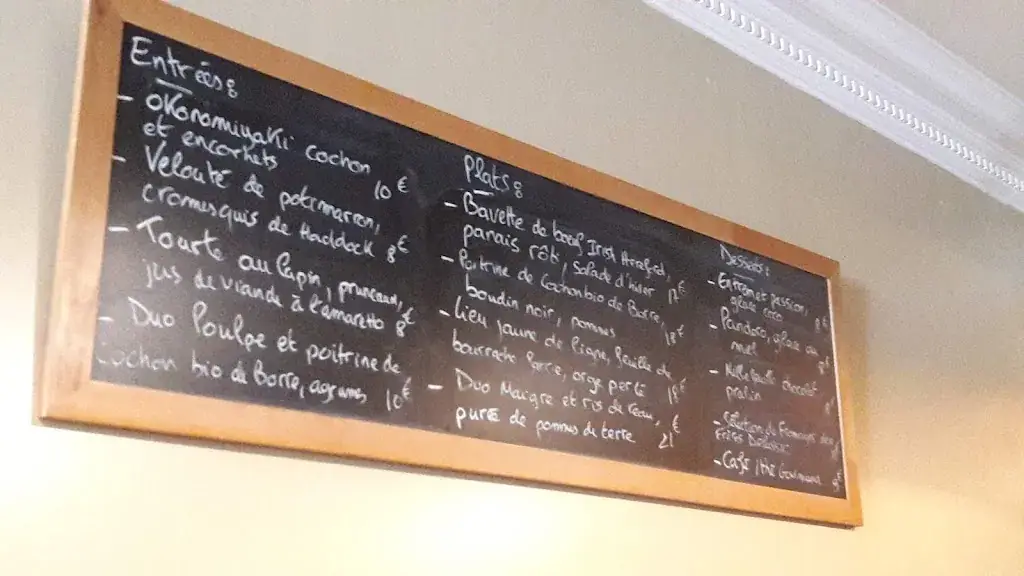 Entrées :
- Okonomiyaki cochon
et encornets 10€
- Velouté de potimarron,
cromesquis de Haddock 8€
- Tourte au lapin, pruneaux,
jus de viande à l'amaretto 8€
- Duo Poulpe et poitrine de
cochon bio de Borre, agrumes 10€
Plats :
- Bavette de bœuf Irish Hereford,
panais rôti / Salade d'hiver 17€
- Poitrine de Cochon bio de Borre,
boudin noir, pommes 18€
- Lieu jaune de ligne, feuille de
bourrache farcie, orge perlé 18€
- Duo Maigre et ris de veau,
purée de pommes de terre 21€
Desserts :
- Entremet passion,
glace coco 8€
- Pandoro, glace au
miel
- Mille feuille chocolat
praliné
- Sélection de Fromages des
Frères
- Café / thé Gourmand 8€